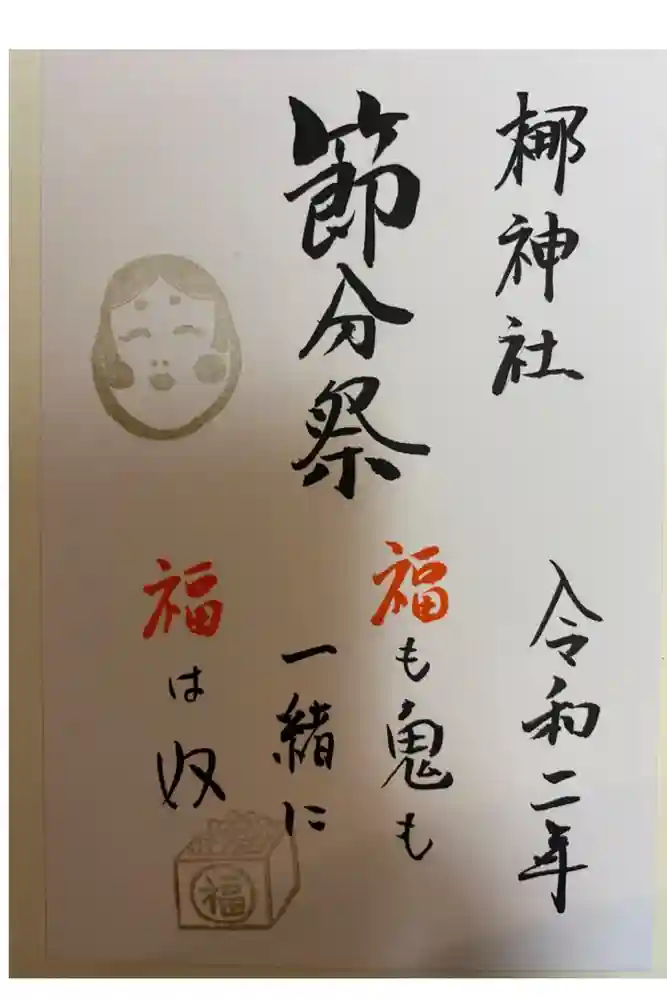 梛神社
令和二年
節分祭
福も鬼も
一緒に
福は収
福